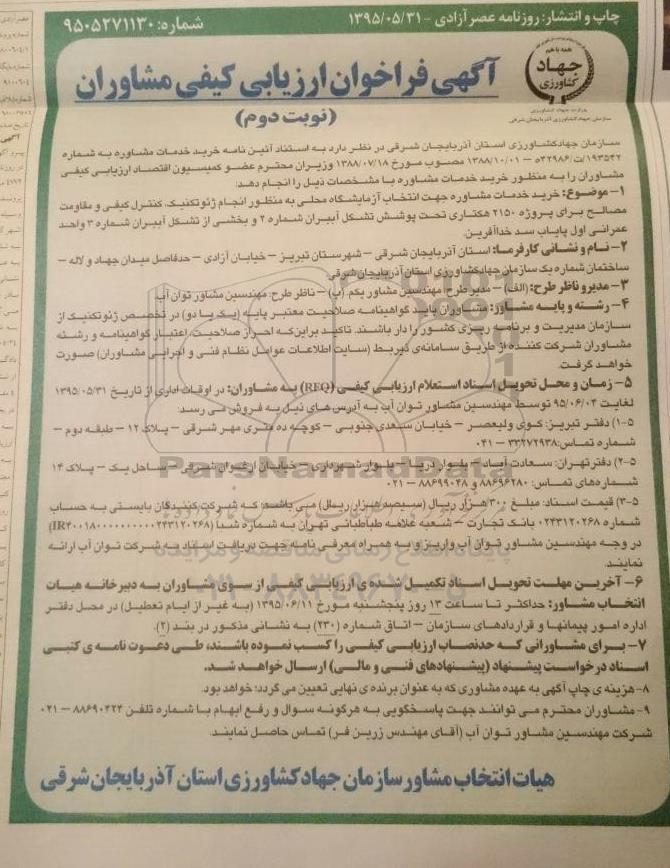 چاپ و انتشار: روزنامه عصرآزادی - ۱۳۹۵/۰۵/۳۱
شماره: ۹۵۰۵۲۷۱۱۳۰
همه با هم
جهاد
کشاورزی
وزارت جهاد کشاورزی
سازمان جهاد کشاورزی آذربایجان شرقی
آگهی فراخوان ارزیابی کیفی مشاوران
(نوبت دوم)
سازمان جهادکشاورزی استان آذربایجان شرقی در نظر دارد به استناد آئین نامه خرید خدمات مشاوره به شماره
۱۹۳۵۴۲/ت۳۲۹۸۶ه – ۱۳۸۸/۱۰/۰۱ مصوب مورخ ۱۳۸۸/۰۷/۱۸ وزیران محترم عضو کمیسیون اقتصاد ارزیابی کیفی
مشاوران را به منظور خرید خدمات مشاوره با مشخصات ذیل را انجام دهد:
۱– موضوع: خرید خدمات مشاوره جهت انتخاب آزمایشگاه محلی به منظور انجام ژئوتکنیک، کنترل کیفی و مقاومت
مصالح برای پروژه ۲۱۵۰ هکتاری تحت پوشش تشکل آببران شماره ۲ و بخشی از تشکل آببران شماره ۳ واحد
عمرانی اول پایاب سد خداآفرین.
۲– نام و نشانی کارفرما: استان آذربایجان شرقی – شهرستان تبریز – خیابان آزادی – حدفاصل میدان جهاد و لاله –
ساختمان شماره یک سازمان جهادکشاورزی استان آذربایجان شرقی
۳– مدیر و ناظر طرح: (الف) – مدیر طرح: مهندسین مشاور یکم. (ب) – ناظر طرح: مهندسین مشاور توان آب
۴– رشته و پایه مشاور: مشاوران باید گواهینامه صلاحیت معتبر پایه (یک یا دو) در تخصص ژئوتکنیک از
سازمان مدیریت و برنامه ریزی کشور را دار باشند. تاکید براینکه احراز صلاحیت، اعتبار گواهینامه و رشته
مشاوران شرکت کننده از طریق سامانه‌ی ذیربط (سایت اطلاعات عوامل نظام فنی و اجرایی مشاوران) صورت
خواهد گرفت.
۵– زمان و محل تحویل اسناد استعلام ارزیابی کیفی (RFQ) به مشاوران: در اوقات اداری از تاریخ ۱۳۹۵/۰۵/۳۱
لغایت ۹۵/۰۶/۰۴ توسط مهندسین مشاور توان آب به آدرس های ذیل به فروش می رسد:
۵-۱) دفتر تبریز: کوی ولیعصر – خیابان سعدی جنوبی – کوچه ده متری مهر شرقی – پلاک ۱۲ – طبقه دوم –
شماره تماس: ۳۳۲۷۲۹۳۸ – ۰۴۱
۵-۲) دفتر تهران: سعادت آباد – بلوار دریا – بلوار شهرداری – خیابان ارغوان شرقی – ساحل یک – پلاک ۱۴
شماره‌های تماس: ۸۸۶۹۶۲۸۰ و ۸۸۶۹۹۰۴۸ – ۰۲۱
۵-۳) قیمت اسناد: مبلغ ۳۰۰ هزار ریال (سیصد هزار ریال) می باشد؛ که شرکت کنندگان بایستی به حساب
شماره ۰۲۴۳۱۲۰۲۶۸ بانک تجارت – شعبه علامه طباطبائی تهران به شماره شبا
در وجه مهندسین مشاور توان آب واریز و به همراه معرفی نامه جهت دریافت اسناد به شرکت توان آب ارائه
نمایند.
۶– آخرین مهلت تحویل اسناد تکمیل شده ی ارزیابی کیفی از سوی مشاوران به دبیرخانه هیات
انتخاب مشاور: حداکثر تا ساعت ۱۳ روز پنجشنبه مورخ ۱۳۹۵/۰۶/۱۱ (به غیر از ایام تعطیل) در محل دفتر
اداره امور پیمانها و قراردادهای سازمان – اتاق شماره (۲۳۰) به نشانی مذکور در بند (۲).
۷– برای مشاورانی که حدنصاب ارزیابی کیفی را کسب نموده باشند، طی دعوت نامه ی کتبی
اسناد درخواست پیشنهاد (پیشنهادهای فنی و مالی) ارسال خواهد شد.
۸– هزینه ی چاپ آگهی به عهده مشاوری که به عنوان برنده ی نهایی تعیین می گردد؛ خواهد بود.
۹– مشاوران محترم می توانند جهت پاسخگویی به هرگونه سوال و رفع ابهام با شماره تلفن ۸۸۶۹۰۴۲۴ – ۰۲۱
شرکت مهندسین مشاور توان آب (آقای مهندس زرین فر) تماس حاصل نمایند.
هیات انتخاب مشاور سازمان جهاد کشاورزی استان آذربایجان شرقی
ParsNamadData
پایگاه اطلاع رسانی مناقصه و مزایده
۰۲۱-۸۸۳۴۹۶۷۰-۵